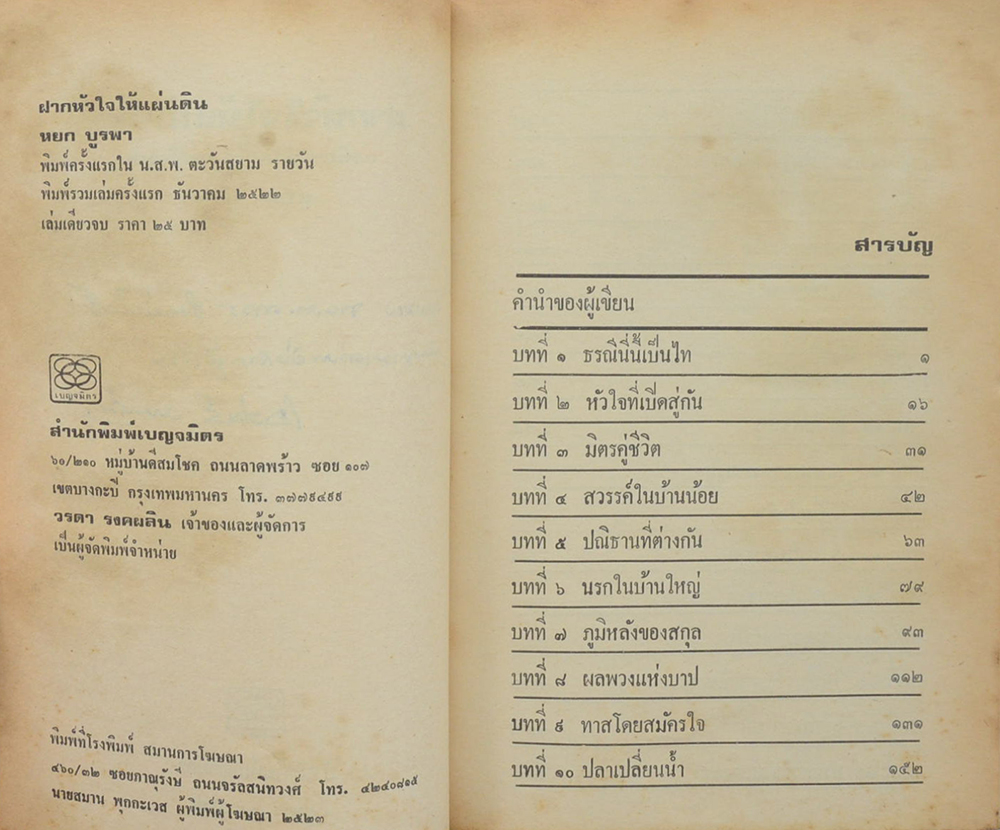 ฝากหัวใจให้แผ่นดิน
หยก บูรพา
พิมพ์ครั้งแรกใน น.ส.พ. ตะวันสยาม รายวัน
พิมพ์รวมเล่มครั้งแรก ธันวาคม ๒๕๒๒
เล่มเดียวจบ ราคา ๒๕ บาท
เบญจมิตร
สำนักพิมพ์เบญจมิตร
๖๐/๒๑๐ หมู่บ้านดีสมโชค ถนนลาดพร้าว ซอย ๑๐๗
เขตบางกะปิ กรุงเทพมหานคร โทร. ๓๗๗๕๔๙๙
วรดา รงคผลิน เจ้าของและผู้จัดการ
เป็นผู้จัดพิมพ์จำหน่าย
พิมพ์ที่โรงพิมพ์ สมานการโฆษณา
๔๖๐/๓๒ ซอยภาณุรังษี ถนนจรัลสนิทวงศ์ โทร. ๔๒๔๐๘๑๕
นายสมาน พุกกะเวส ผู้พิมพ์ผู้โฆษณา ๒๕๒๓
สารบัญ
คำนำของผู้เขียน
บทที่ ๑ ธรณีนี่นี้เป็นไท ๑
บทที่ ๒ หัวใจที่เปิดสู่กัน ๑๖
บทที่ ๓ มิตรคู่ชีวิต ๓๑
บทที่ ๔ สวรรค์ในบ้านน้อย ๔๒
บทที่ ๕ ปณิธานที่ต่างกัน ๖๓
บทที่ ๖ นรกในบ้านใหญ่ ๗๙
บทที่ ๗ ภูมิหลังของสกุล ๙๓
บทที่ ๘ ผลพวงแห่งบาป ๑๑๒
บทที่ ๙ ทาสโดยสมัครใจ ๑๓๑
บทที่ ๑๐ ปลาเปลี่ยนน้ำ ๑๕๒